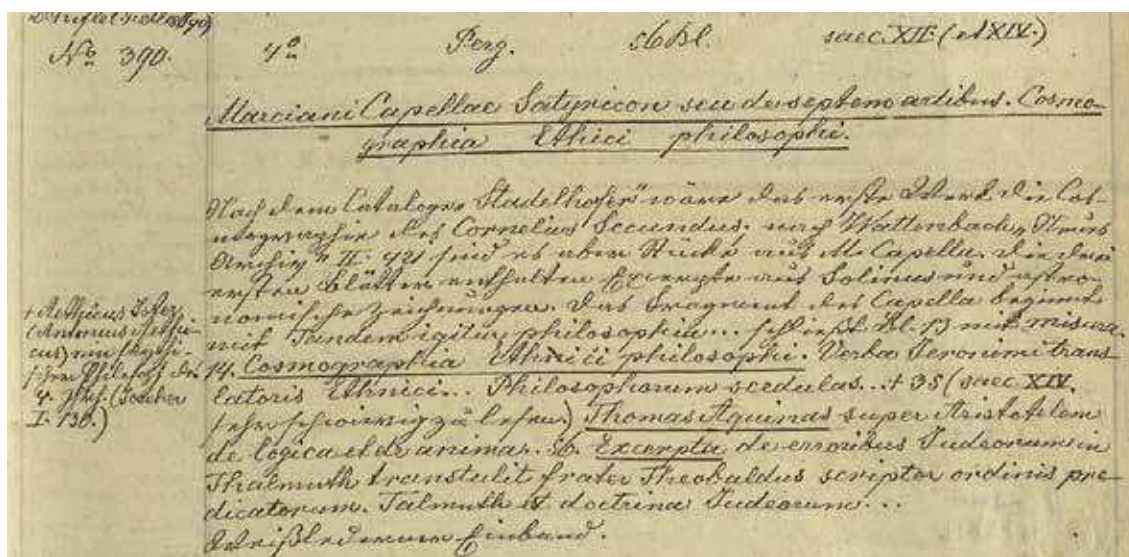 No 390. 4o Perg. 56 Bl. saec. XII (et XIV.)
Marciani Capellae Satyricon seu de septem artibus. Cosmo-
graphia Ethici philosophi.
Nach dem Cataloge Stadelhofer's wäre das erste Werk die Cos-
mographie des Cornelius Secundus, nach Wattenbach, Neues
Archiv" II. 421 sind es aber Stücke aus M. Capella. Die drei
ersten Blätter enthalten Excerpte aus Solinus und astro-
nomische Zeichnungen. Das Fragment des Capella beginnt
mit Tandem igitur philosophia... schließt Bl. 13 mit misura.
14. Cosmographia Ethnici philosophi. Verba Jeronimi trans-
latoris Ethnici... Philosophorum scedulas...+ 35 (saec XIV.
sehr schwierig zu lesen.) Thomas Aquinas super Aristotelem
de logica et de anima. 56. Excerpta de erroribus Judeorum in
Thalmuth transtulit frater Theobaldus scriptor ordinis pre-
dicatorum. Talmuth et doctrina Judeorum...
Weißlederner Einband.
+ Aethicus Ister
4. Jhrh. (Joecher
I. 130.)